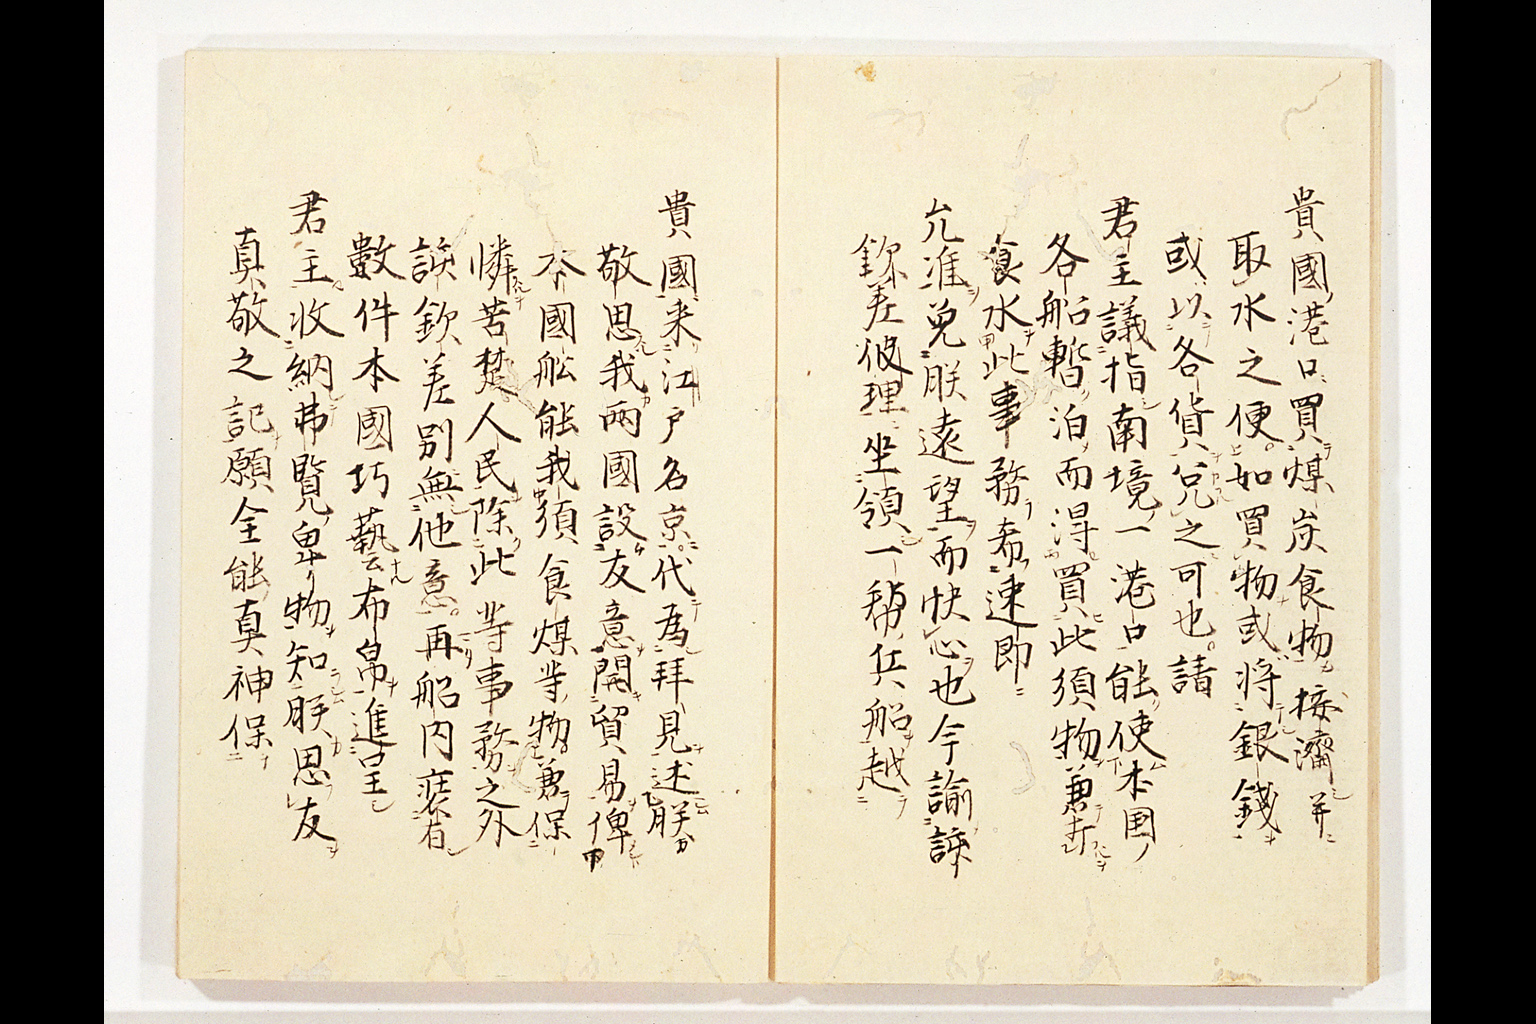 貴國港口買煤炭食物接濟并
取水之便如買物或将銀錢
或以各貨兌之可也請
君主議指南境一港口能使本国
各船暫泊而得買此須物兼
食水此事務希速即
允准免朕遠望而快心也今諭
欽差彼理坐領一幇兵船越
貴國来江戸名京代為拜見述朕
敬思我兩國設友意開貿易俾
本國舩能我須食煤等物兼保
憐苦楚人民除此等事務之外
該欽差别無他意再船内裝有
數件本國巧藝布帛進呈
君主收納弗覽卑物知朕思友
真敬之記願全能真神保